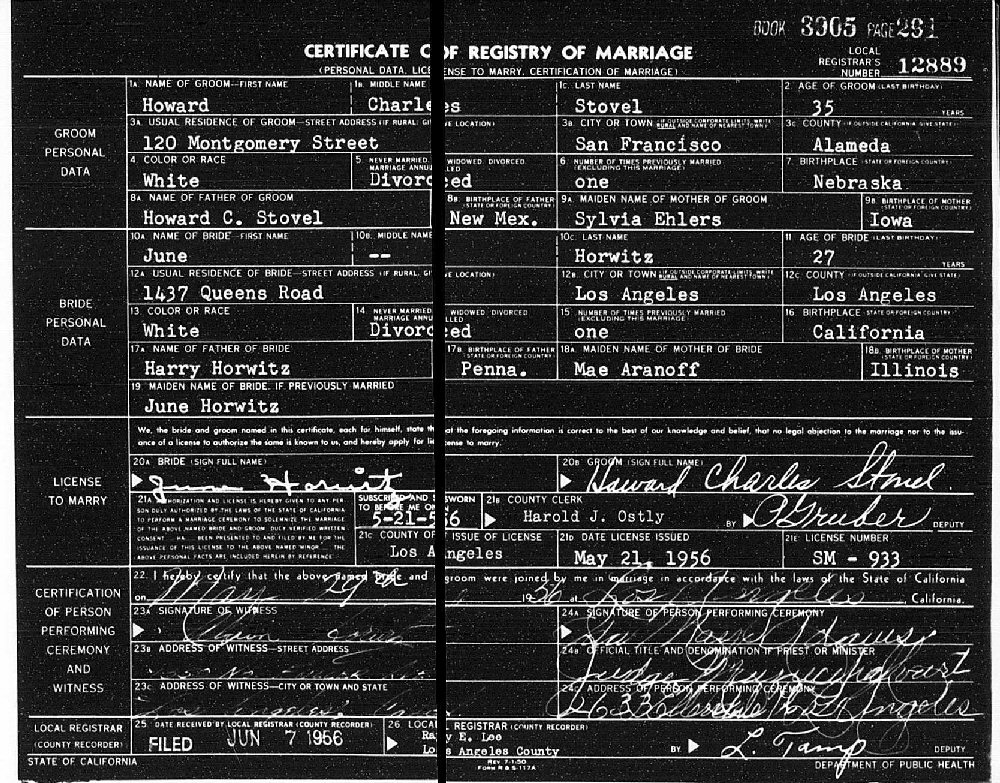 BOOK 3905 PAGE 291
CERTIFICATE OF REGISTRY OF MARRIAGE
(PERSONAL DATA, LICENSE TO MARRY, CERTIFICATION OF MARRIAGE)
LOCAL REGISTRAR'S NUMBER 12889
GROOM PERSONAL DATA
1A. NAME OF GROOM—FIRST NAME 1B. MIDDLE NAME 1C. LAST NAME 2. AGE OF GROOM (LAST BIRTHDAY)
Howard Charles Stovel 35 YEARS
3A. USUAL RESIDENCE OF GROOM—STREET ADDRESS (IF RURAL, GIVE LOCATION) 3B. CITY OR TOWN (IF OUTSIDE CORPORATE LIMITS, WRITE RURAL AND NAME OF NEAREST TOWN) 3C. COUNTY (IF OUTSIDE CALIFORNIA, GIVE STATE)
120 Montgomery Street San Francisco Alameda
4. COLOR OR RACE 5. NEVER MARRIED, WIDOWED, DIVORCED, MARRIAGE ANNULLED 6. NUMBER OF TIMES PREVIOUSLY MARRIED (EXCLUDING THIS MARRIAGE) 7. BIRTHPLACE (STATE OR FOREIGN COUNTRY)
White Divorced one Nebraska
8A. NAME OF FATHER OF GROOM 8B. BIRTHPLACE OF FATHER (STATE OR FOREIGN COUNTRY) 9A. MAIDEN NAME OF MOTHER OF GROOM 9B. BIRTHPLACE OF MOTHER (STATE OR FOREIGN COUNTRY)
Howard C. Stovel New Mex. Sylvia Ehlers Iowa
BRIDE PERSONAL DATA
10A. NAME OF BRIDE—FIRST NAME 10B. MIDDLE NAME 10C. LAST NAME 11. AGE OF BRIDE (LAST BIRTHDAY)
June -- Horwitz 27 YEARS
12A. USUAL RESIDENCE OF BRIDE—STREET ADDRESS (IF RURAL, GIVE LOCATION) 12B. CITY OR TOWN (IF OUTSIDE CORPORATE LIMITS, WRITE RURAL AND NAME OF NEAREST TOWN) 12C. COUNTY (IF OUTSIDE CALIFORNIA, GIVE STATE)
1437 Queens Road Los Angeles Los Angeles
13. COLOR OR RACE 14. NEVER MARRIED, WIDOWED, DIVORCED, MARRIAGE ANNULLED 15. NUMBER OF TIMES PREVIOUSLY MARRIED (EXCLUDING THIS MARRIAGE) 16. BIRTHPLACE (STATE OR FOREIGN COUNTRY)
White Divorced one California
17A. NAME OF FATHER OF BRIDE 17B. BIRTHPLACE OF FATHER (STATE OR FOREIGN COUNTRY) 18A. MAIDEN NAME OF MOTHER OF BRIDE 18B. BIRTHPLACE OF MOTHER (STATE OR FOREIGN COUNTRY)
Harry Horwitz Penna. Mae Aranoff Illinois
19. MAIDEN NAME OF BRIDE, IF PREVIOUSLY MARRIED
June Horwitz
LICENSE TO MARRY
We, the bride and groom named in this certificate, each for himself, state that the foregoing information is correct to the best of our knowledge and belief, that no legal objection to the marriage nor to the issu-
ance of a license to authorize the same is known to us, and hereby apply for license to marry.
20A. BRIDE (SIGN FULL NAME) 20B. GROOM (SIGN FULL NAME)
June Horwitz Howard Charles Stovel
21A. AUTHORIZATION AND LICENSE IS HEREBY GIVEN TO ANY PER-
SON DULY AUTHORIZED BY THE LAWS OF THE STATE OF CALIFORNIA
TO PERFORM A MARRIAGE CEREMONY TO SOLEMNIZE THE MARRIAGE
OF THE ABOVE NAMED BRIDE AND GROOM. DULY VERIFIED WRITTEN
CONSENT HA BEEN PRESENTED TO AND FILED BY ME FOR THE
ISSUANCE OF THIS LICENSE TO THE ABOVE NAMED MINOR. THE
ABOVE PERSONAL FACTS ARE INCLUDED HEREIN BY REFERENCE.
SUBSCRIBED AND SWORN TO BEFORE ME ON
5-21-56
21B. COUNTY CLERK
Harold J. Ostly BY P Gruber DEPUTY
21C. COUNTY OF ISSUE OF LICENSE 21D. DATE LICENSE ISSUED 21E. LICENSE NUMBER
Los Angeles May 21, 1956 SM - 933
CERTIFICATION OF PERSON PERFORMING CEREMONY AND WITNESS
22. I hereby certify that the above named bride and groom were joined by me in marriage in accordance with the laws of the State of California
on May 29 1956 at Los Angeles, California.
23A. SIGNATURE OF WITNESS 24A. SIGNATURE OF PERSON PERFORMING CEREMONY
23B. ADDRESS OF WITNESS—STREET ADDRESS 24B. OFFICIAL TITLE AND DENOMINATION IF PRIEST OR MINISTER
Judge Municipal Court
23C. ADDRESS OF WITNESS—CITY OR TOWN AND STATE 24C. ADDRESS OF PERSON PERFORMING CEREMONY
Los Angeles
LOCAL REGISTRAR (COUNTY RECORDER)
25. DATE RECEIVED BY LOCAL REGISTRAR (COUNTY RECORDER) 26. LOCAL REGISTRAR (COUNTY RECORDER)
FILED JUN 7 1956 Ray E. Lee
Los Angeles County BY L. Tamp DEPUTY
STATE OF CALIFORNIA REV 7-1-50 FORM R & S-117A DEPARTMENT OF PUBLIC HEALTH